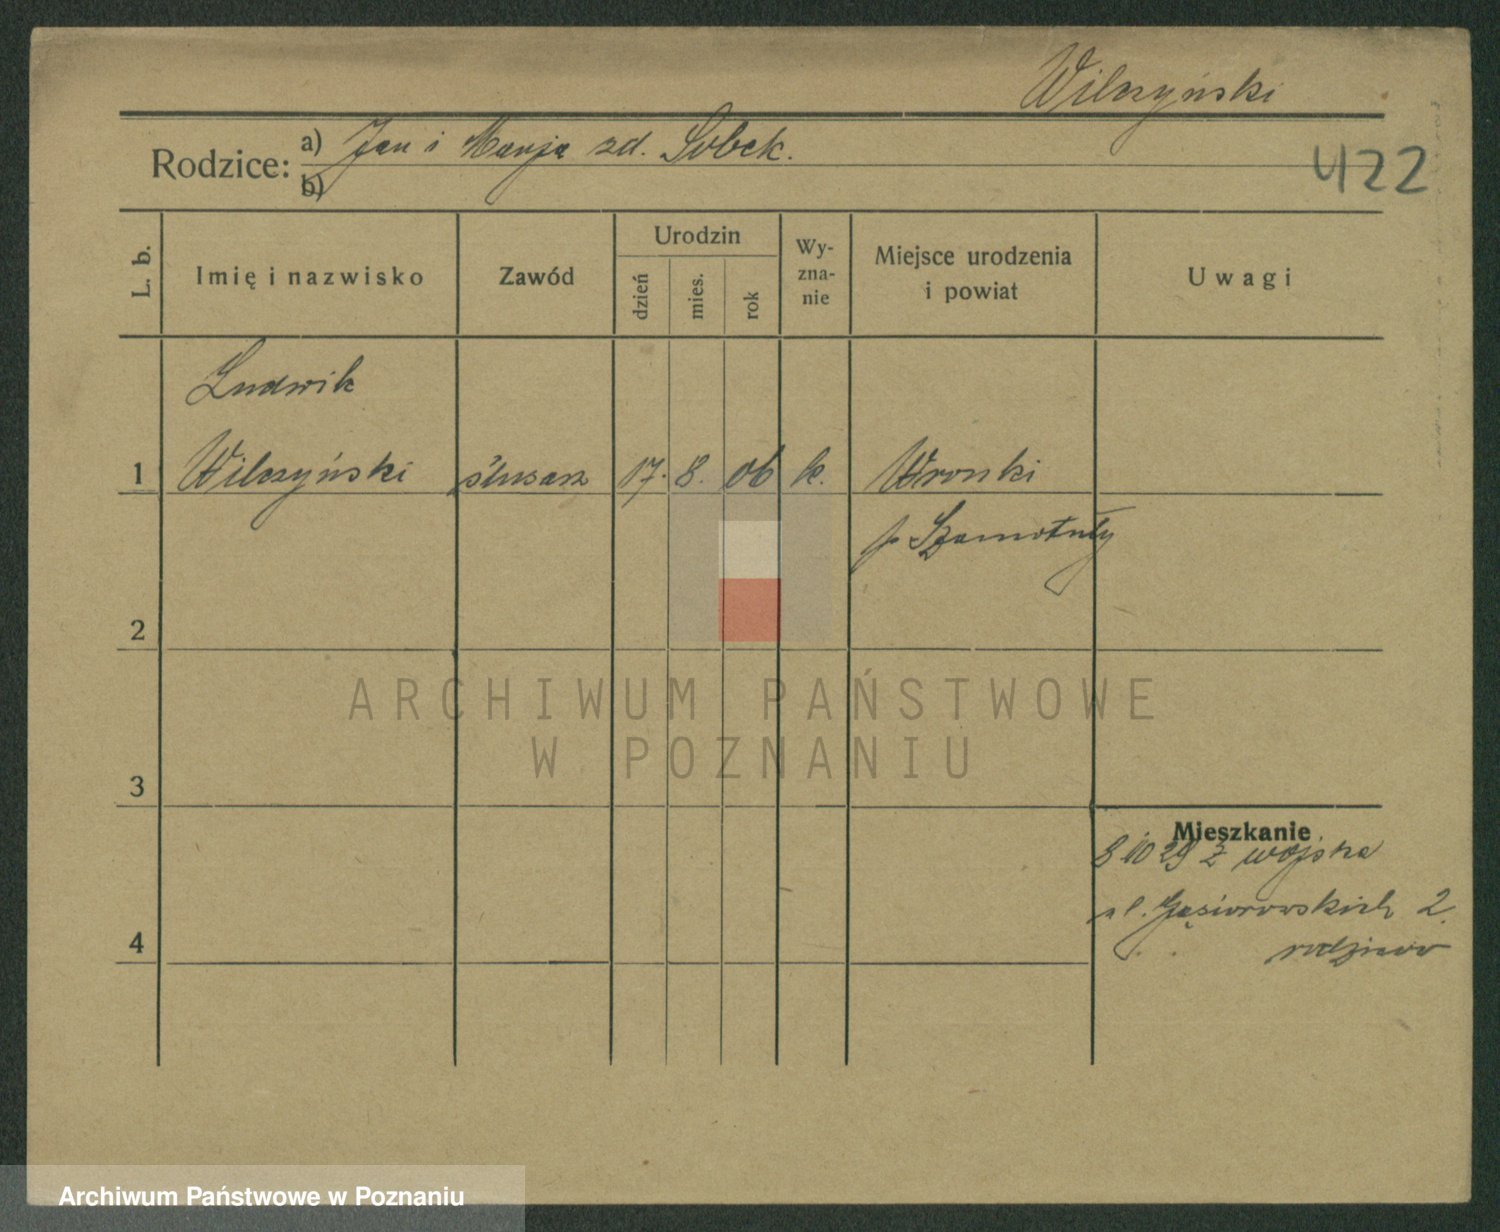 Wilczyński
Rodzice: a) Jan i Marja zd. Sobek.
b)
422
L. b.
Imię i nazwisko
Zawód
Urodzin
dzień
mies.
rok
Wy-
zna-
nie
Miejsce urodzenia
i powiat
Uwagi
Ludwik
1 Wilczyński ślusarz 17. 8. 06 k. Wronki
p. Szamotuły
2
ARCHIWUM PAŃSTWOWE
W POZNANIU
3
Mieszkanie
8 10 29 z wojska
ul. Gąsiorowskich 2.
4
Archiwum Państwowe w Poznaniu